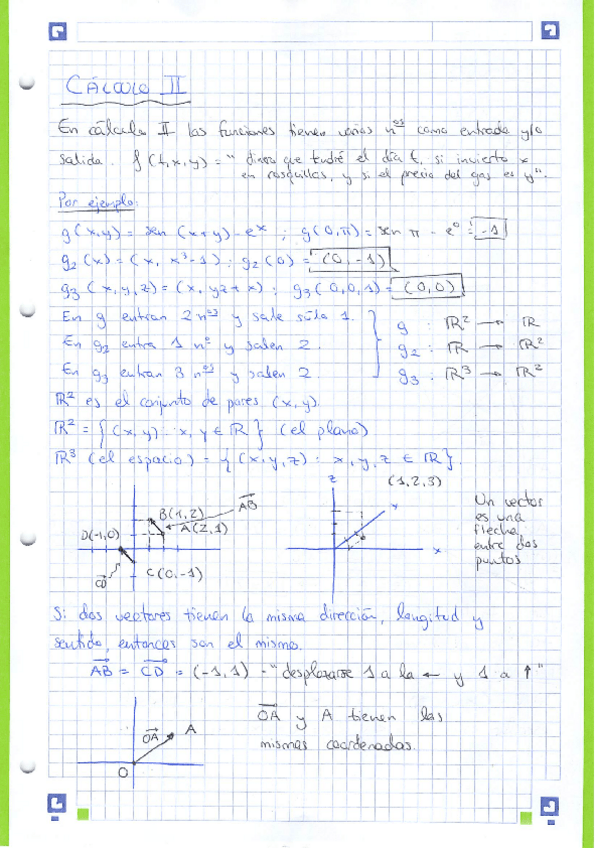 CÁLCULO II
En cálculo II las funciones tienen varios nos como entrada y/o
salida. f(t,x,y) = "dinero que tendré el día t, si invierto x
en rosquillas, y si el precio del gas es y".
Por ejemplo:
g(x,y) = sen (x+y) - eˣ ; g(0,π) = sen π - e⁰ = -1
g₂(x) = (x, x³-1) ; g₂(0) = (0,-1)
g₃(x,y,z) = (x, yz+x) ; g₃(0,0,1) = (0,0)
En g entran 2 nos y sale sólo 1. g : ℝ² → ℝ
En g₂ entra 1 nº y salen 2. g₂ : ℝ → ℝ²
En g₃ entran 3 nos y salen 2. g₃ : ℝ³ → ℝ²
ℝ² es el conjunto de pares (x,y).
ℝ² = {(x,y) : x,y ∈ ℝ} (el plano)
ℝ³ (el espacio) = {(x,y,z) : x,y,z ∈ ℝ}.
z (1,2,3)
B(1,2) AB y
D(-1,0) A(2,1)
x
CD C(0,-1)
Un vector
es una
flecha
entre dos
puntos
Si dos vectores tienen la misma dirección, longitud y
sentido, entonces son el mismo.
AB = CD = (-1,1) - "desplazarse 1 a la ← y 1 a ↑"
OA A
O
OA y A tienen las
mismas coordenadas.